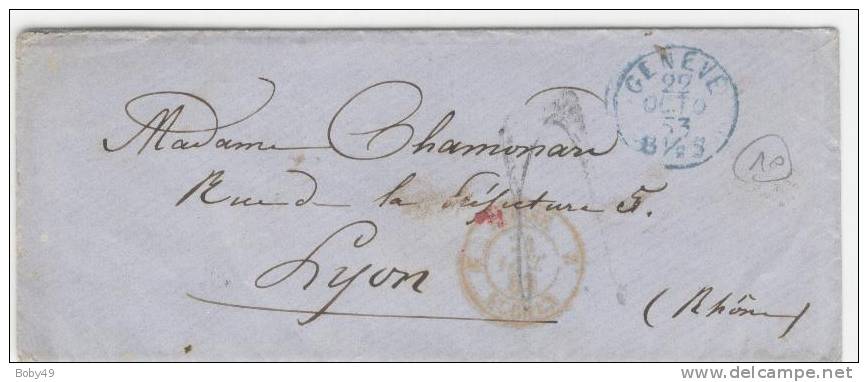 GENEVE
22
OCTO
53
8 ½ S
10
Madame Chamonard
Rue de la Préfecture 5.
Lyon
(Rhône)
Boby49
delcampe.net